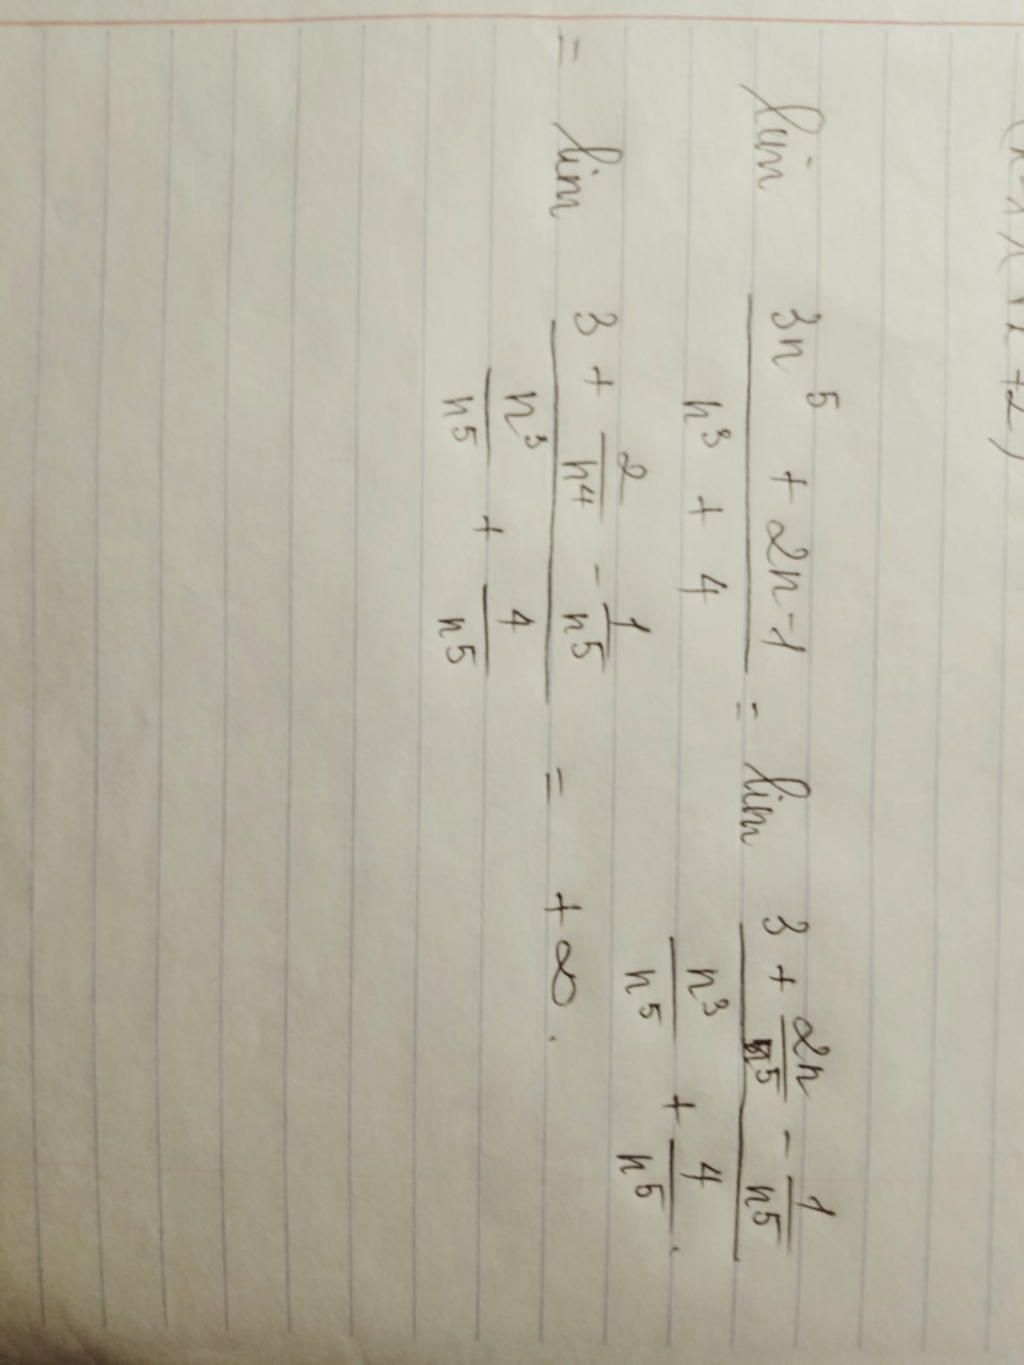 lim \frac{3n^5 + 2n - 1}{n^3 + 4} = lim \frac{3 + \frac{2n}{n^5} - \frac{1}{n^5}}{\frac{n^3}{n^5} + \frac{4}{n^5}}.
= lim \frac{3 + \frac{2}{n^4} - \frac{1}{n^5}}{\frac{n^3}{n^5} + \frac{4}{n^5}} = +∞.